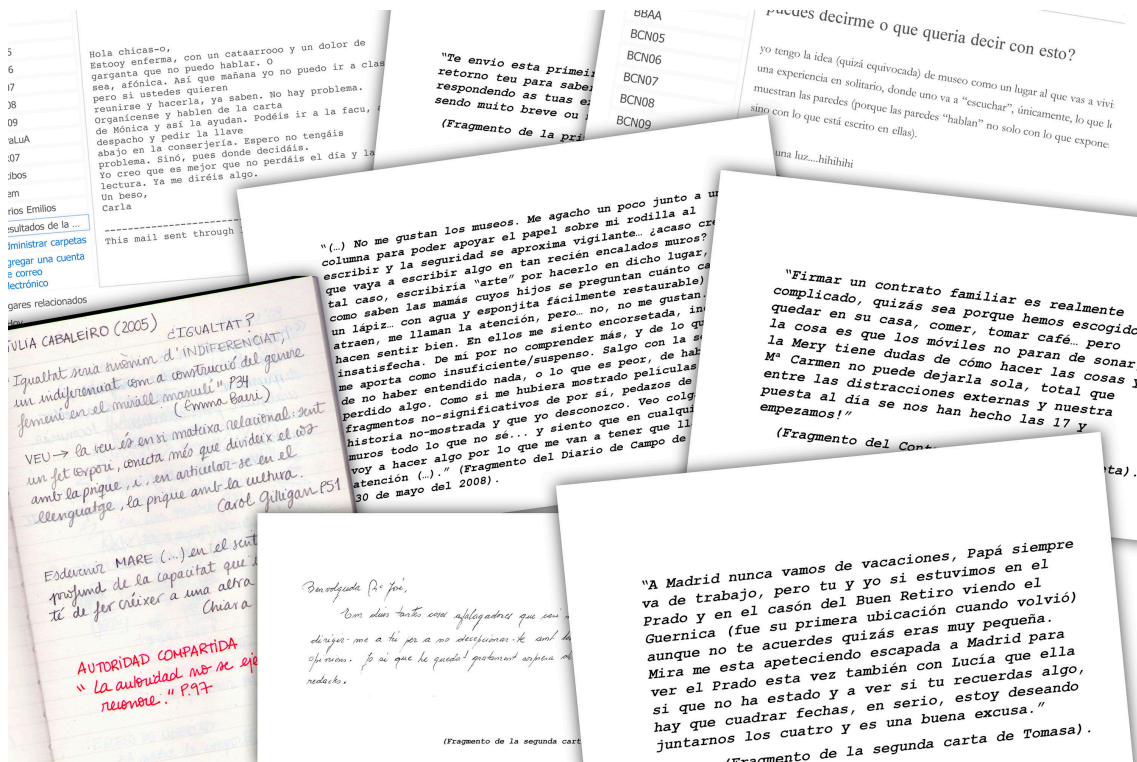 Hola chicas-o,
Estooy enferma, con un cataarrooo y un dolor de
garganta que no puedo hablar. O
sea, afónica. Así que mañana yo no puedo ir a clas
pero si ustedes quieren
reunirse y hacerla, ya saben. No hay problema.
Organícense y hablen de la carta
de Mónica y así la ayudan. Podéis ir a la facu,
despacho y pedir la llave
abajo en la conserjería. Espero no tengáis
problema. Sinó, pues donde decidáis.
Yo creo que es mejor que no perdáis el día y la
lectura. Ya me diréis algo.
Un beso,
Carla
This mail sent through
09
aLuA
:07
ibos
em
rios Emilios
esultados de la ...
dministrar carpetas
gregar una cuenta
e correo
lectrónico
gares relacionados
"Te envio esta primei
retorno teu para sabe
respondendo as tuas e
sendo muito breve ou
(Fragmento de la pri
BBAA
BCN05
BCN06
BCN07
BCN08
BCN09
puedes decirme o que queria decir con esto?
yo tengo la idea (quizá equivocada) de museo como un lugar al que vas a vivi
una experiencia en solitario, donde uno va a "escuchar", únicamente, lo que l
muestran las paredes (porque las paredes "hablan" no solo con lo que expone
sino con lo que está escrito en ellas).
una luz....hihihihi
"(…) No me gustan los museos. Me agacho un poco junto a u
columna para poder apoyar el papel sobre mi rodilla al
escribir y la seguridad se aproxima vigilante… ¿acaso cre
que vaya a escribir algo en tan recién encalados muros?
tal caso, escribiría "arte" por hacerlo en dicho lugar,
como saben las mamás cuyos hijos se preguntan cuánto ca
un lápiz… con agua y esponjita fácilmente restaurable)
atraen, me llaman la atención, pero… no, no me gustan.
hacen sentir bien. En ellos me siento encorsetada, in
insatisfecha. De mí por no comprender más, y de lo qu
me aporta como insuficiente/suspenso. Salgo con la s
de no haber entendido nada, o lo que es peor, de hab
perdido algo. Como si me hubiera mostrado películas
fragmentos no-significativos de por si, pedazos de
historia no-mostrada y que yo desconozco. Veo colg
muros todo lo que no sé... y siento que en cualqui
voy a hacer algo por lo que me van a tener que ll
atención (…)." (Fragmento del Diario de Campo de
30 de mayo del 2008).
"Firmar un contrato familiar es realmente
complicado, quizás sea porque hemos escogido
quedar en su casa, comer, tomar café… pero
la cosa es que los móviles no paran de sonar,
la Mery tiene dudas de cómo hacer las cosas y
Mª Carmen no puede dejarla sola, total que
entre las distracciones externas y nuestra
puesta al día se nos han hecho las 17 y
empezamos!"
(Fragmento del Cont
eta).
JULIA CABALEIRO (2005) ¿IGUALTAT?
Igualtat seria sinònim d'INDIFERENCIAT,
un indiferenciat com a construcció del gènere
femení en el mirall masculí" P34
(Emma Baeri)
VEU → la veu és en si mateixa relacional: sent
un fet corpori, conecta més que divideix el cos
amb la psique, i, en articular-se en el
llenguatge, la psique amb la cultura.
Carol Gilligan P51
Esdevenir MARE (...) en el sent
profund de la capacitat que
té de fer créixer a una altra
Chiara
AUTORIDAD COMPARTIDA
"La autoridad no se eje
reconoce." P.97
Benvolguda Mª José,
Em dius tantes coses afalagadores que casi
dirigir-me a tú per a no decepcionar-te amb
opinions. Jo sí que he quedat gratament
redacto.
(Fragmento de la segunda cart
"A Madrid nunca vamos de vacaciones, Papá siempre
va de trabajo, pero tu y yo si estuvimos en el
Prado y en el casón del Buen Retiro viendo el
Guernica (fue su primera ubicación cuando volvió)
aunque no te acuerdes quizás eras muy pequeña.
Mira me esta apeteciendo escapada a Madrid para
ver el Prado esta vez también con Lucía que ella
si que no ha estado y a ver si tu recuerdas algo,
hay que cuadrar fechas, en serio, estoy deseando
juntarnos los cuatro y es una buena excusa."
(Fragmento de la segunda carta de Tomasa).